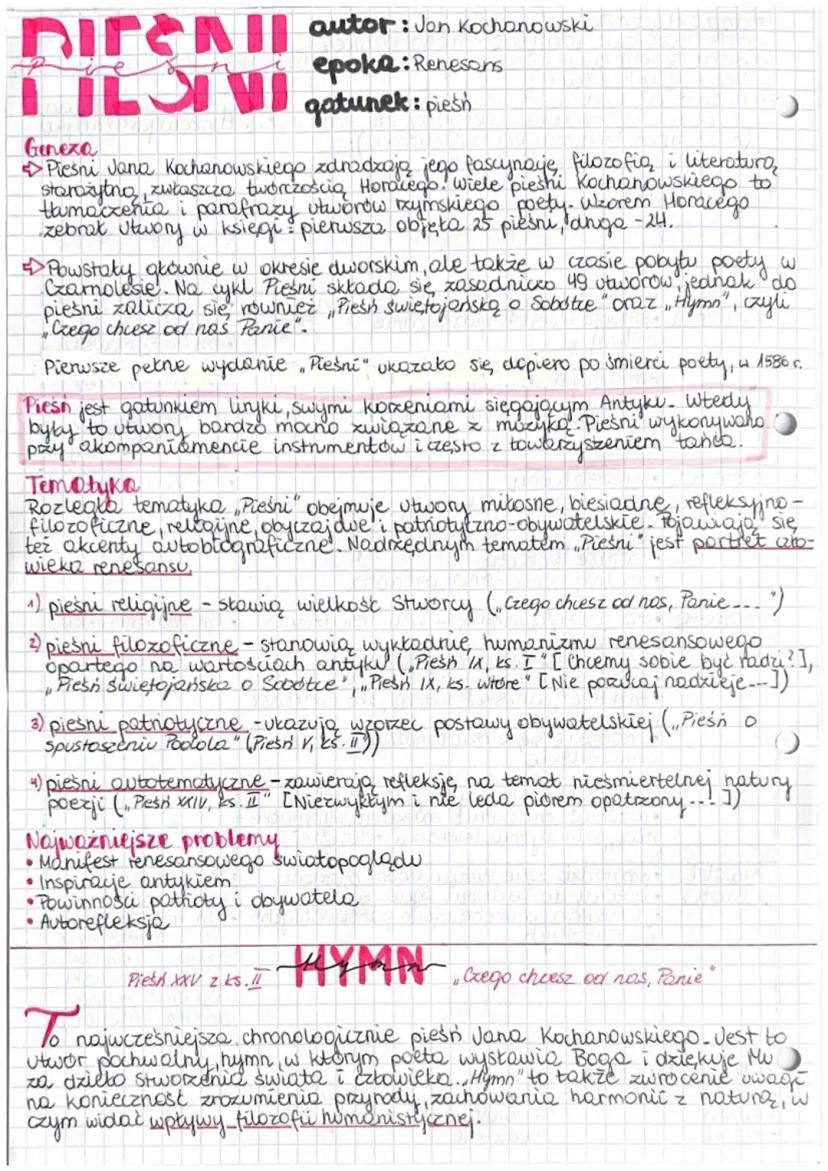 PIEŚNI
Pieśni
autor: Jan Kochanowski
epoka: Renesans
gatunek: pieśń
Geneza
⇨ Pieśni Jana Kochanowskiego zdradzają jego fascynację filozofią i literaturą
starożytną, zwłaszcza twórczością Horacego. Wiele pieśni Kochanowskiego to
tłumaczenia i parafrazy utworów rzymskiego poety. Wzorem Horacego
zebrał utwory w księgi: pierwsza objęła 25 pieśni, druga - 24.
⇨ Powstały głównie w okresie dworskim, ale także w czasie pobytu poety w
Czarnolesie. Na cykl Pieśni składa się zasadniczo 49 utworów, jednak do
pieśni zalicza się również „Pieśń świętojańską o Sobótce" oraz „Hymn", czyli
„Czego chcesz od nas Panie".
Pierwsze pełne wydanie „Pieśni" ukazało się dopiero po śmierci poety, w 1586 r.
Pieśń jest gatunkiem liryki, swymi korzeniami sięgającym Antyku. Wtedy
były to utwory bardzo mocno związane z muzyką. Pieśni wykonywano
przy akompaniamencie instrumentów i często z towarzyszeniem tańca.
Tematyka
Rozległa tematyka „Pieśni" obejmuje utwory miłosne, biesiadne, refleksyjno-
filozoficzne, religijne, obyczajowe i patriotyczno-obywatelskie. Pojawiają się
też akcenty autobiograficzne. Nadrzędnym tematem „Pieśni" jest portret czło-
wieka renesansu.
1) pieśni religijne - sławią wielkość Stwórcy („Czego chcesz od nas, Panie...")
2) pieśni filozoficzne - stanowią wykładnię humanizmu renesansowego
opartego na wartościach antyku („Pieśń IX, ks. I" [Chcemy sobie być radzi?],
„Pieśń świętojańska o Sobótce", „Pieśń IX, ks. wtóre" [Nie porzucaj nadzieje...])
3) pieśni patriotyczne - ukazują wzorzec postawy obywatelskiej („Pieśń o
spustoszeniu Podola" (Pieśń V, ks. II))
4) pieśni autotematyczne - zawierają refleksję na temat nieśmiertelnej natury
poezji („Pieśń XXIV, ks. II" [Niezwykłym i nie leda piórem opatrzony...])
Najważniejsze problemy
• Manifest renesansowego światopoglądu
• Inspiracje antykiem
• Powinności patrioty i obywatela
• Autorefleksja
Pieśń XXV z ks. II HYMN „Czego chcesz od nas, Panie"
Hymn
To najwcześniejsza chronologicznie pieśń Jana Kochanowskiego. Jest to
utwór pochwalny, hymn, w którym poeta wysławia Boga i dziękuje Mu
za dzieło stworzenia świata i człowieka. „Hymn" to także zwrócenie uwagi
na konieczność zrozumienia przyrody, zachowania harmonii z naturą, w
czym widać wpływy filozofii humanistycznej.